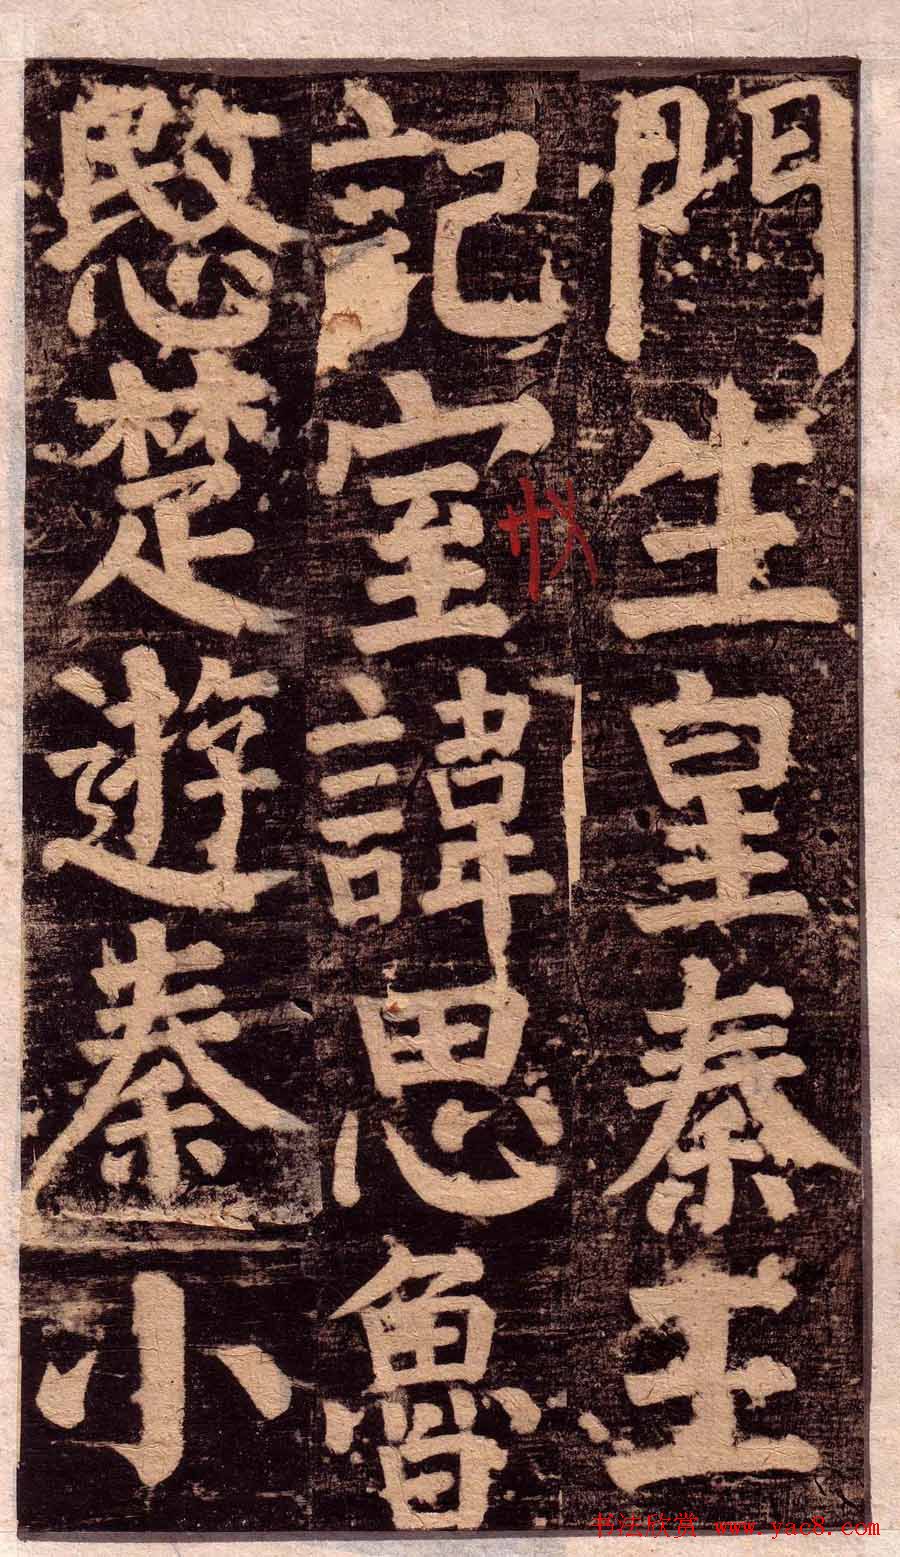 門生皇秦王
記室諱思魯
愍楚遊秦小
书法欣赏 www.yac8.com